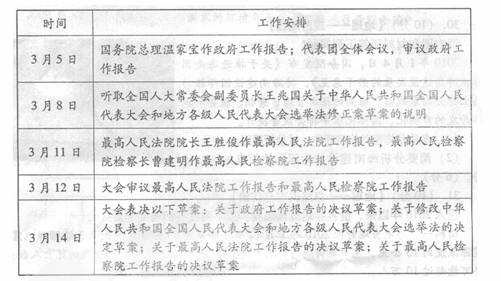 时间 工作安排
3月5日
国务院总理温家宝作政府工作报告；代表团全体会议，审议政府工
作报告
3月8日
听取全国人大常委会副委员长王兆国关于中华人民共和国全国人民
代表大会和地方各级人民代表大会选举法修正案草案的说明
3月11日
最高人民法院院长王胜俊作最高人民法院工作报告，最高人民检察
院检察长曹建明作最高人民检察院工作报告
3月12日
大会审议最高人民法院工作报告和最高人民检察院工作报告
3月14日
大会表决以下草案：关于政府工作报告的决议草案；关于修改中华
人民共和国全国人民代表大会和地方各级人民代表大会选举法的决
定草案；关于最高人民法院工作报告的决议草案；关于最高人民检
察院工作报告的决议草案